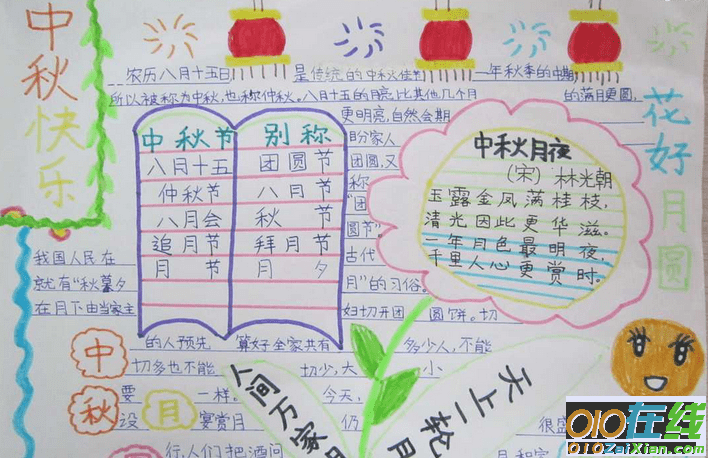 中秋快乐
农历八月十五日 是传统的中秋佳节 一年秋季的中期
所以被称为中秋,也称仲秋。八月十五的月亮比其他几个月 的满月更圆,
更明亮,自然会期
盼家人
团圆,又
称
“团
圆节”
古代
月”的习俗。
中秋节 别称
八月十五 团圆节
仲秋节 八月节
八月会 秋节
追月节 拜月节
月节 月夕
中秋月夜
(宋) 林光朝
玉露金风满桂枝,
清光因此更华滋。
一年月色最明夜,
千里人心更赏时。
花好月圆
我国人民在
就有“秋暮夕
在月下由当家主 妇切开团 圆饼。切
的人预先 算好全家共有 多少人,不能
切多也不能 切少,大 小
要 一样。 今天,
设 宴赏月 仍 很盛
行,人们把酒问 月
中
秋
月
圆
人间万家
天上一轮月
010在线
010ZaiXian.com